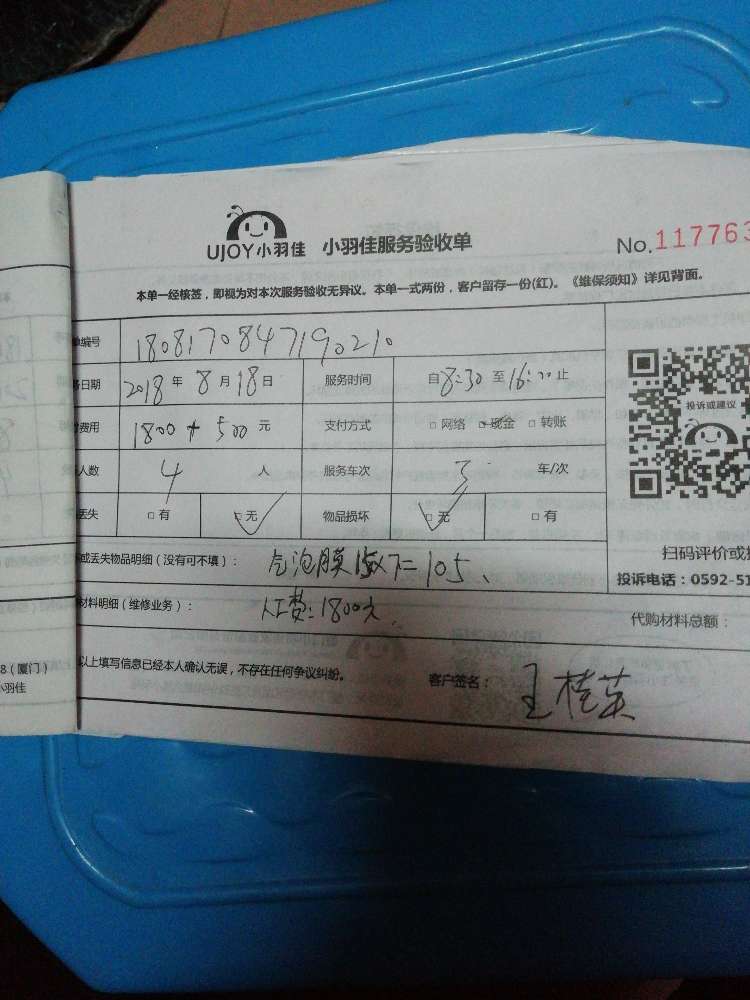 UJOY小羽佳 小羽佳服务验收单
No.117763
本单一经核签，即视为对本次服务验收无异议。本单一式两份，客户留存一份(红)。《维保须知》详见背面。
编号 1808170847190210
日期 2018 年 8 月 18 日 服务时间 自 8:30 至 16:00 止
费用 1800 + 500 元 支付方式 □ 网络 □ 现金 □ 转账
人数 4 人 服务车次 3 车/次
丢失 □ 有 □ 无 物品损坏 □ 无 □ 有
投诉或建议
或丢失物品明细（没有可不填）： 气泡膜15x7=105、
扫码评价或
投诉电话：0592-51
材料明细（维修业务）： 人工费：1800元
代购材料总额：
以上填写信息已经本人确认无误，不存在任何争议纠纷。 客户签名： 王桂英
8（厦门）
小羽佳